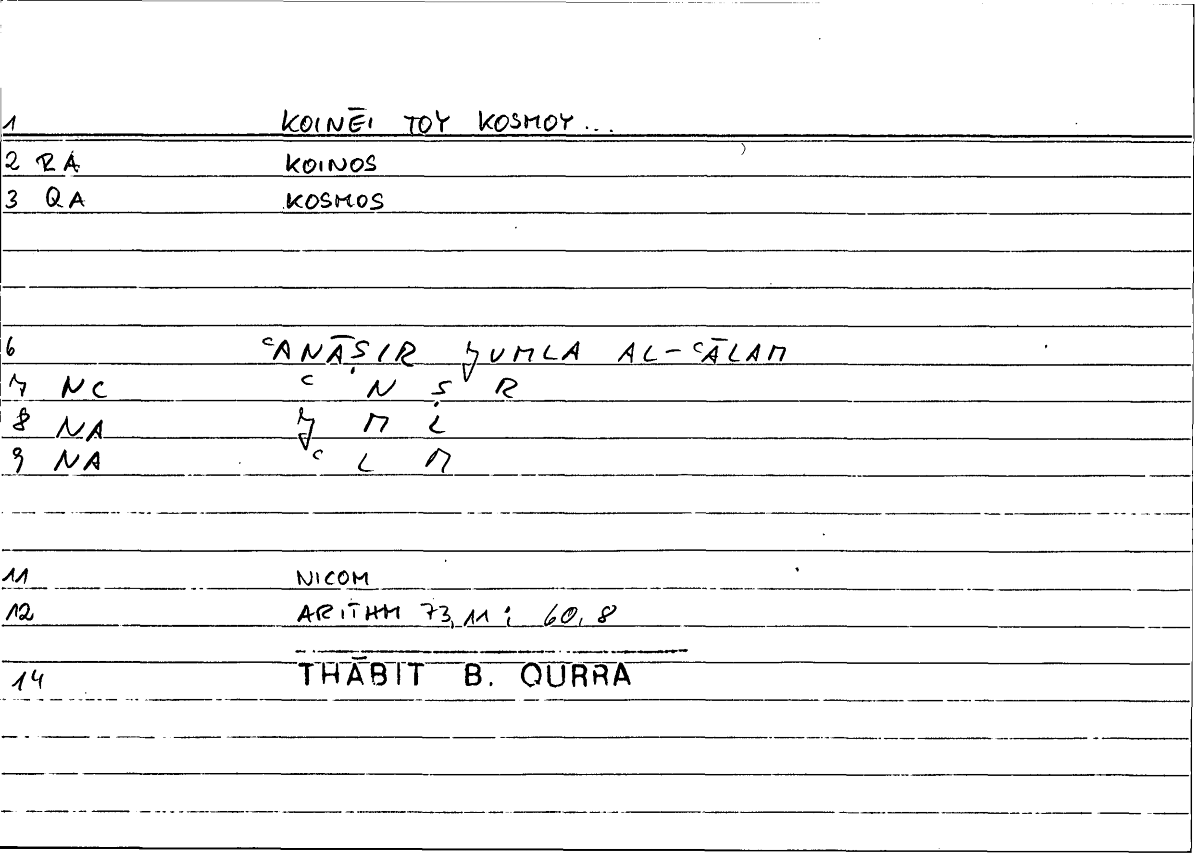 1 KOINĒI TOY KOSMOY...
2 RA KOINOS
3 QA KOSMOS
6 ʿANĀṢIR ǦUMLA AL-ʿĀLAM
7 NC ʿ N Ṣ R
8 NA Ǧ M L
9 NA ʿ L M
11 NICOM
12 ARITHM 73,11 ; 60,8
14 THĀBIT B. QURRA